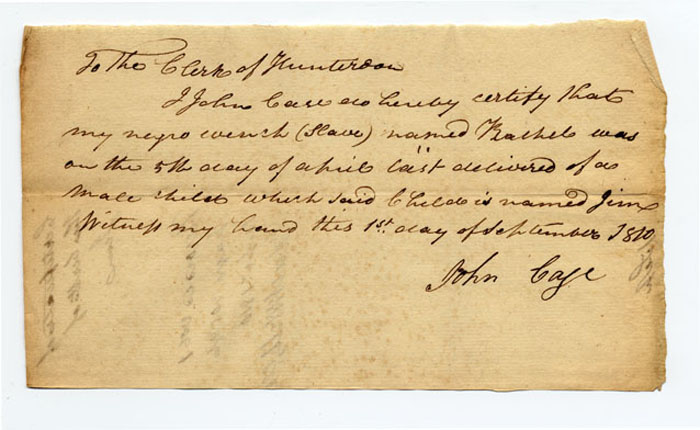 To the Clerk of Hunterdon
I John Case do hereby certify that
my negro wench (Slave) named Rachel was
on the 5th day of april last delivered of a
male child which said Child is named Jim
Witness my hand this 1st day of September 1810
John Case